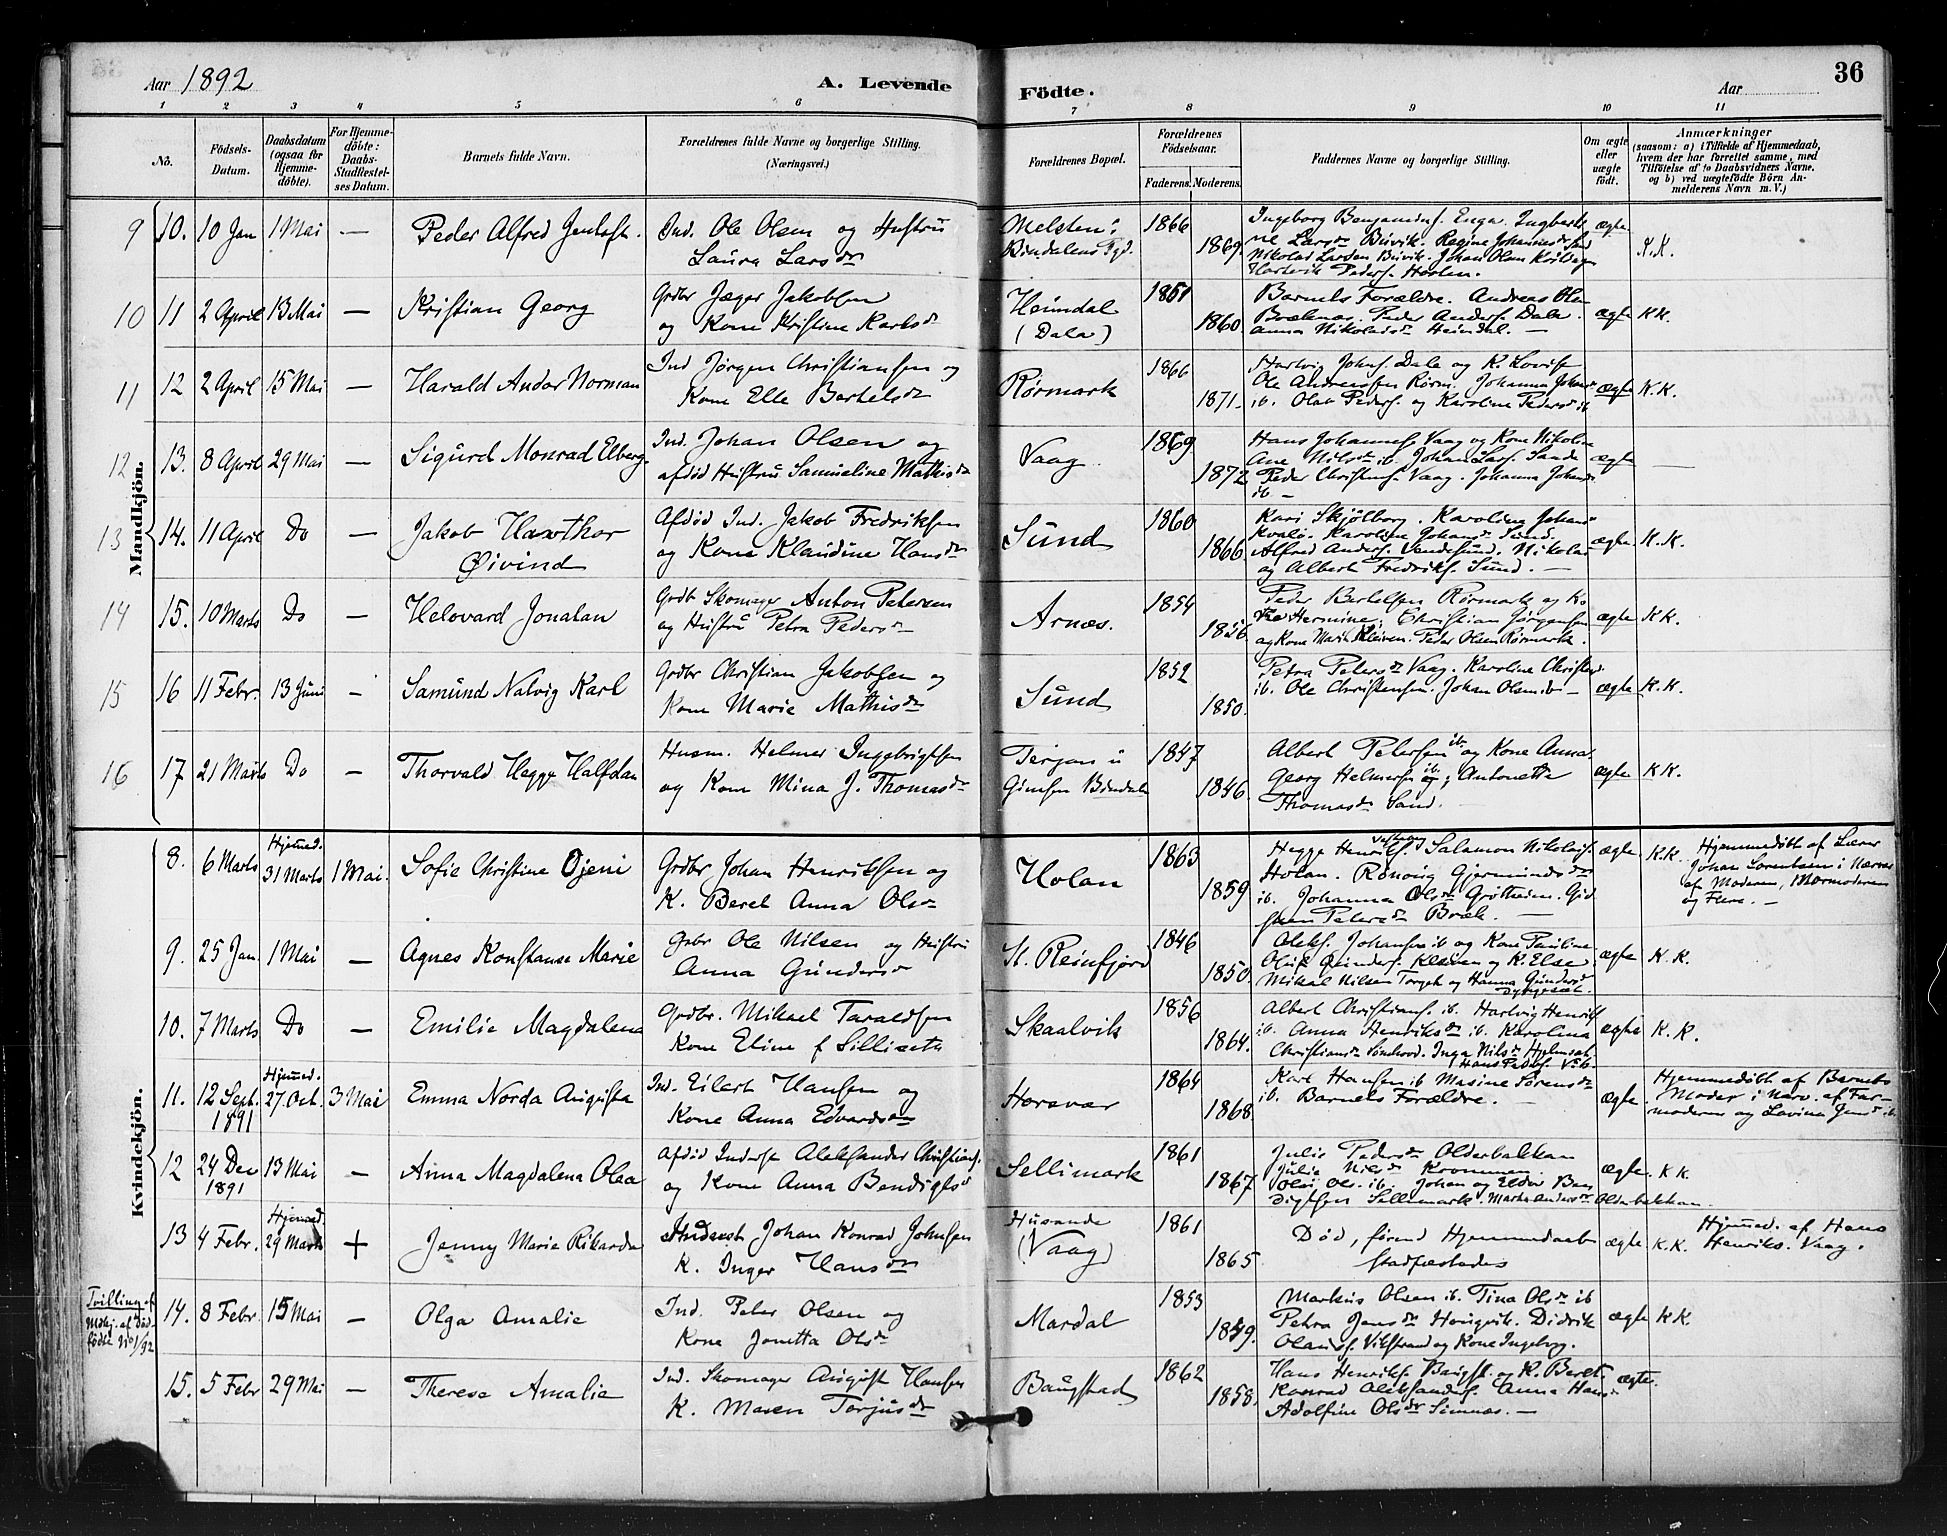 Aar 1892 A. Levende Födte. Aar 36
1 2 3 4 5 6 7 8 9 10 11
Nô. Födsels-Datum. Daabsdatum (ogsaa for Hjemme-döbte). For Hjemme-döbte: Daabs-Stadfæstel-ses Datum. Barnets fulde Navn. Forældrenes fulde Navne og borgerlige Stilling. (Næringsvei.) Forældrenes Bopæl. Forældrenes Födselsaar. Faderens. Moderens. Faddernes Navne og borgerlige Stilling. Om ægte eller uægte födt. Anmærkninger (saasom: a) i Tilfælde af Hjemmedaab, hvem der har forrettet samme, med Tilföielse af to Daabsvidners Navne, og b) ved uægtefödte Börn An-melderens Navn m. V.)
Mandkjön.
9 10. 10 Jan 1 Mai — Peder Alfred Ind. Ole Olsen og Hustru
Laura Larsdr
Melsten i
Bindalens Pgd.
1866 1869.
Ingeborg Benjaminsf. Enga
ne Larsdr Buvik. Regine Johannesdr Sand
Nikolai Larsen Buvik. Johan Olsen
Hartvik Pedersf. Horten.
ægte K.K.
10 11 2 April 13 Mai — Kristian Georg Grdbr Jæger Jakobsen
og Kone Kristine Karlsdr
Heimdal
(Dala)
1851 1860
Barnets Forældre. Andreas Ols
Peder Andersf. Dala.
Anna Nikolaisdr Heimdal. —
ægte KK.
11 12 2 April 15 Mai — Harald Andor Norman Ind Jörgen Christiansen og
Kone Elle Bertelsdr
Rörmark
1866 1871.
Hartvig Johnsf. Dale og K. Lovise
Ole Andreassen Rörm. Johanna Johansdr
ib. Olav Pedersf. og Karoline Pedersdr ib
ægte K.K.
12 13. 8 April 29 Mai — Sigurd Monrad Elberg. Ind. Johan Olsen og
afdöd Hustru Samueline Mathisdr
Vaag.
1869 1872
Hans Johannesf Vaag og Kone Nikoline
Ane Nilsdr ib. Johan Larsf. Sande
Peder Christensf. Vaag. Johanna Johansdr
ib. —
ægte —
13 14. 11 April Do — Jakob Hawthor
Öivind
Afdöd Ind. Jakob Fredriksen
og Kone Klaudine Hansdr
Sund
1860 1866.
Kari Skjölborg. Karoline Johansdr
Kvalö. Karoline Johansdr Sund.
Alfred Andersf. Vendesund. Nikolai
og Albert Fredriksf. Sund. —
ægte. K.K.
14 15. 10 Marts Do — Helovard Jonatan Grdb Skomager Anton Petersen
og Hustru Petra Pedersdr
Arnæs.
1854 1856.
Peder Bertelsen Rörmark og Ko
ne Hermine; Christian Jörgensen
og Kone Marit Kleiven. Peder Olsen Rörmark.
ægte KK.
15 16 11 Febr. 13 Juni — Samund Nalvig Karl Grdbr Christian Jakobsen og
Kone Marie Mathisdr
Sund
1852 1850.
Petra Petersdr Vaag. Karoline Christensdr
ib. Ole Christensen. Johan Olsen ib —
ægte K.K.
16 17 21 Marts Do — Thorvald Hegge Halfdan Husm. Helmer Ingebrigtsen
og Kone Mina J. Thomasdr
Terjan i
Gimsen Bindalen
1847 1846.
Albert Petersen ib. og Kone Anna.
Georg Helmersen ib. og; Antonette
Thomasdr Sand.
ægte KK.
Kvindekjön.
8. 6 Marts Hjemmed. 31 Marts 1 Mai. Sofie Christine Ojeni Grdbr Johan Henriksen og
K. Beret Anna Olsdr
Holan
1863 1859
Hegge Henriksf. Salamon Nikolaisf.
Holan. Rönnoug Gjermundsdr
ib. Johanna Olsdr Gröttheim.
Petersdr Bræk. —
ægte K.K. Hjemmedöbt af Lærer
Johan Lorentsen i Nærvær
af Moderen, Mormoderen
og Flere. —
9. 25 Jan. 1 Mai — Agnes Konstanse Marie Grbr Ole Nilsen og Hustru
Anna Gundersdr
St. Reinfjord
1846 1850.
Aleksf. Johansen ib og Kone Pauline
Oluf Gundersf. Kleiven og K. Else;
Mikal Nilsen Torget og Hanna Gundersdr
ægte K.K.
10. 7 Marts Do — Emilie Magdalena Grdbr. Mikael Taraldsen
Kone Eline f Sillisæta
Skaalvik
1856 1864.
Albert Christiansf. ib. Hartvig Henriksf
ib. Anna Henriksdr ib. Karolina
Christiansdr. Inga Nilsdr
Hans Pedersf. Vik.
ægte K.K.
11. 12 Sept. 1891 Hjemmed. 27 Oct. 3 Mai Emma Norda Augusta Ind. Eilert Hansen og
Kone Anna Edvardsdr
Horsvær
1864 1868.
Karl Hansen ib Masine Sörensdr
ib. Barnets Forældre. —
ægte. Hjemmedöbt af Barnets
Moder i Nærv. af Far-
moderen og Lovina Jensdr ib
12 24 Dec 1891 13 Mai — Anna Magdalena Olea Afdöd Inderst Aleksander Christiansf.
og Kone Anna Bendigtsdr
Sellimark
1861 1867
Julie Pedersdr Olderbakkan
Julie Nilsdr Krommen.
Olsf. ib. Johan og Eldor Ben
digtsen Sellimark. Marta Andersdr Olderbakkan.
ægte. KK.
13 4 Febr. Hjemmed. 29 Marts + Jenny Marie Rikarda Inderst Johan Konrad Johnsen
K. Inger Hansdr
Husande
(Vaag)
1861 1865
Död, förend Hjemmedaab
stadfæstedes
ægte K.K. Hjemmed. af Hans
Henriks. Vaag.
Tvilling af
Mdkj. af död-
födte No 1/92
14. 8 Febr 15 Mai — Olga Amalie Ind. Peter Olsen og
Kone Jonetta Olsdr
Mardal
1853 1849.
Markus Olsen ib. Tina Olsdr ib
Petra Jensdr Hongvik. Didrik
Olausf. Vikstrand og Kone Ingeborg.
ægte KK.
15. 5 Febr 29 Mai — Therese Amalie Ind. Skomager August Hansen
K. Maren Torjusdr
Baugstad
1862 1858.
Hans Henriksf. Baugst. og K. Beret.
Konrad Aleksandersf. Anna Hansdr
Adolfine Olsdr Simnæs. —
ægte.